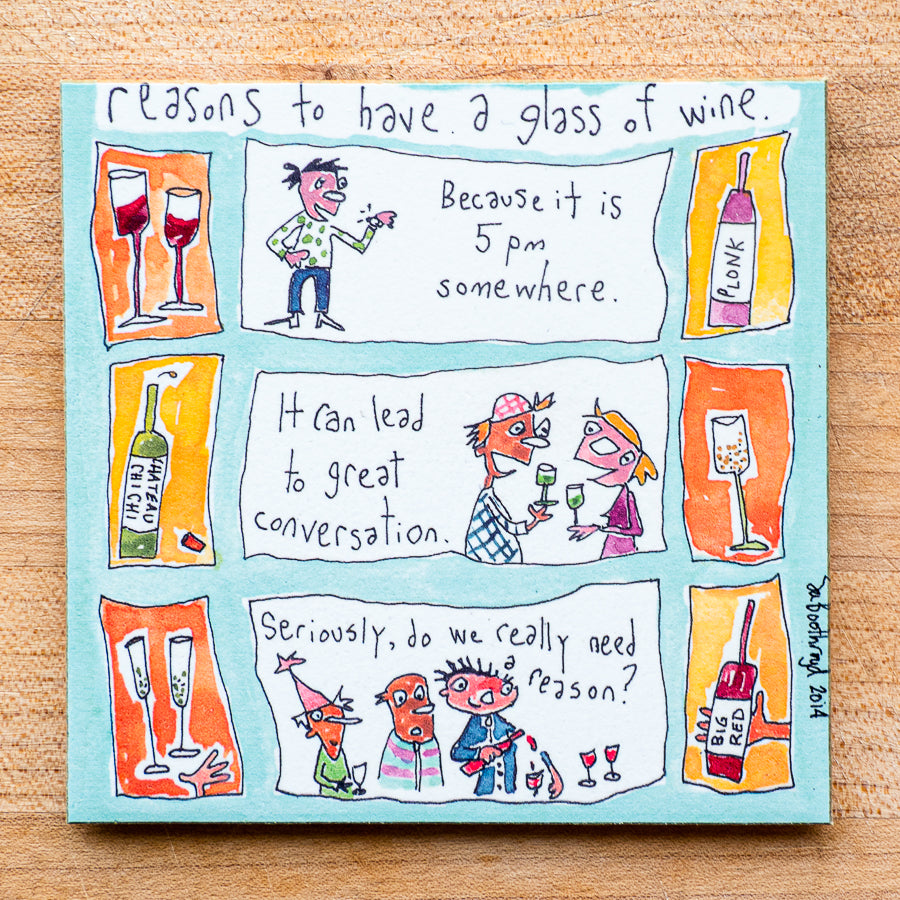 reasons to have a glass of wine.
Because it is
5 pm
somewhere.
PLONK
It can lead
to great
conversation.
CHATEAU
CHICHI
Seriously, do we really need
a
reason?
BIG
RED
2014